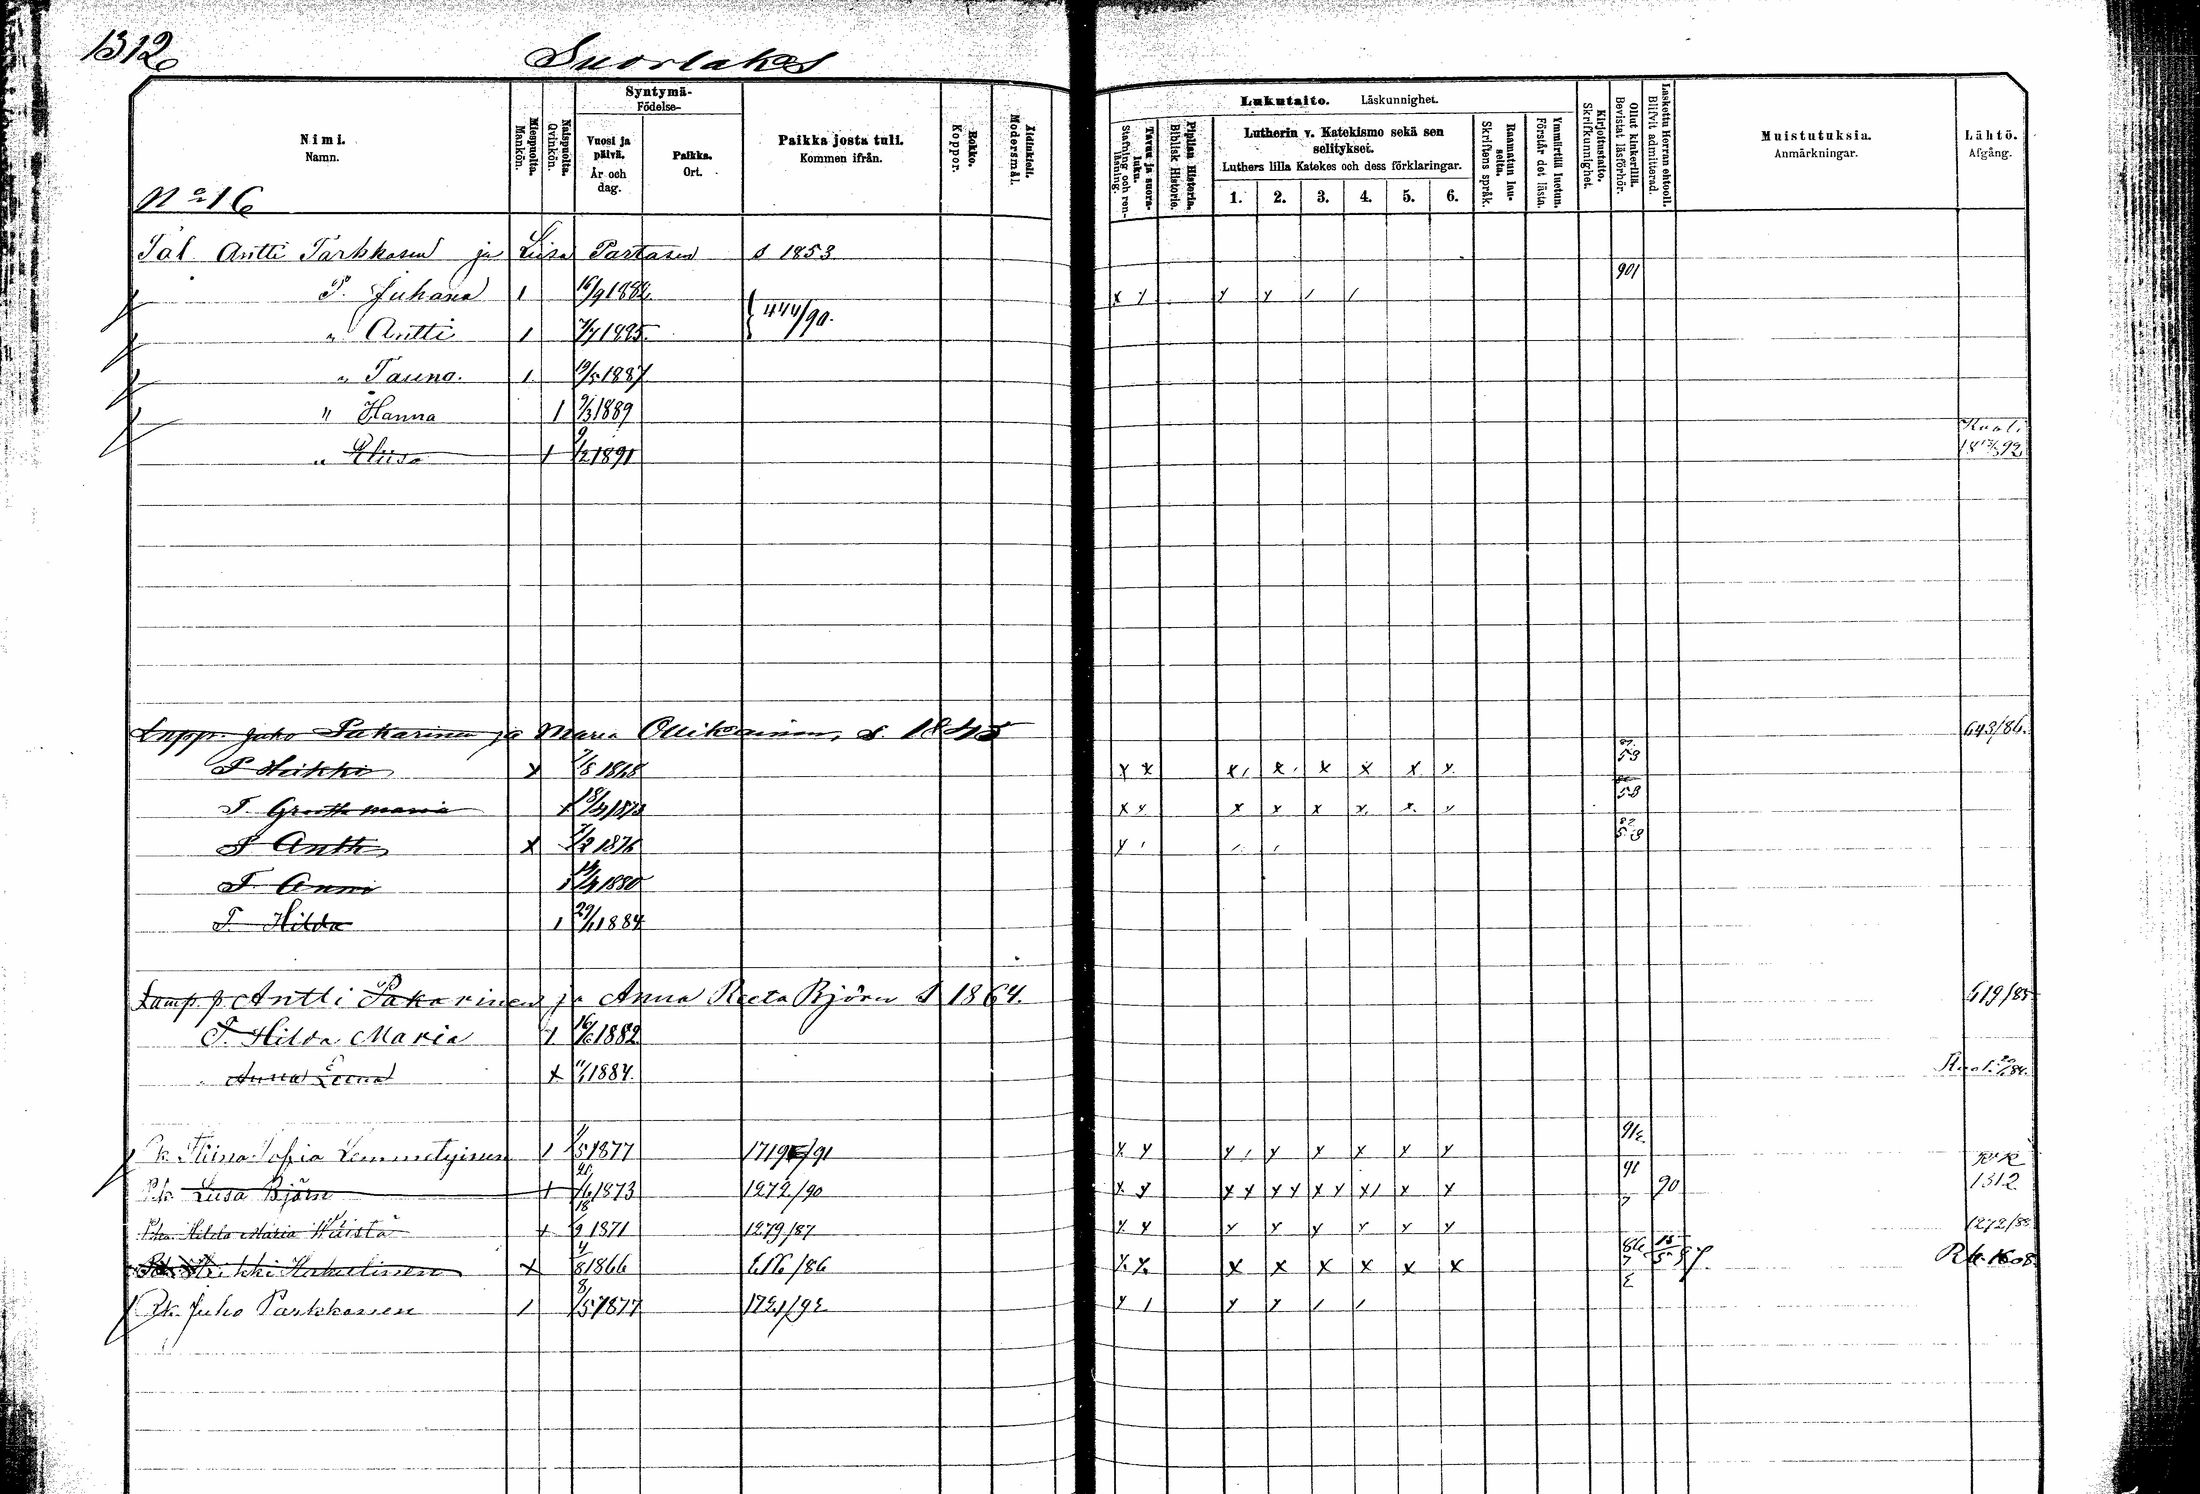 1312
Suorlaks
Nimi. Namn.
Miespuolia. Mankön.
Naispuolia. Qvinkön.
Syntymä- Födelse-
Vuosi ja päivä. År och dag.
Paikka. Ort.
Paikka josta tuli. Kommen ifrån.
Rokko. Koppor.
Äidinkieli. Modersmål.
Tavuu ja suora-luku. Stafning och ren-läsning.
Piplian Historia. Biblisk Historie.
Lukutaito. Läskunnighet.
Lutherin v. Katekismo sekä sen selitykset.
Luthers lilla Katekes och dess förklaringar.
1. 2. 3. 4. 5. 6.
Raamatun lauseita. Skriftens språk.
Ymmärtää luetun. Förstår det lästa.
Kirjoitustaito. Skrifkunnighet.
Ollut kinkerillä. Bevistat läsförhör.
Laskettu Herran ehtooll. Blifvit admitterad.
Muistutuksia. Anmärkningar.
Lähtö. Afgång.
No 16
Tal Antti Parkkosen ja Liisa Partasen s 1853
P. Juhana 1 16/9 1882 x y y y / / 901
" Antti 1 7/7 1885. 444/90.
" Tauno. 1. 19/5 1887
" Hanna 1 9/3 1889
" Eliisa 1 9/2 1891 Kuoli 18 13/3 92
Lapp. Juho Pakarinen ja Maria Ollikainen, s. 1845 643/86.
P Heikki x 7/8 1868 x x x x x x x x
T. Greetta Maria x 18/3 1873 x x x x x x x x
P Antti x 7/2 1876
T. Anni 1880
T. Hilda 1 29/1 1884
Lamp p. Antti Pakarinen ja Anna Reeta Björn S 1864. 619/85
T. Hilda Maria 1 16/6 1882
" Anna Leena x 1/1 1884. Kuol. 20/1 84.
Pk Stiina Sofia Lemmetyinen 1 5 1877 1719/91
Pk Liisa Björn 1 1873 1272/90 91 90 RK 1312
Pka Hilda Maria Wäistä x 18/9 1871 1279/87 1272/88
Pk Heikki Hakulinen x 4/8 1866 616/86 x x x x x x Rk 1608
Rk. Juho Parkkonen 1 8/5 1877 1721/92